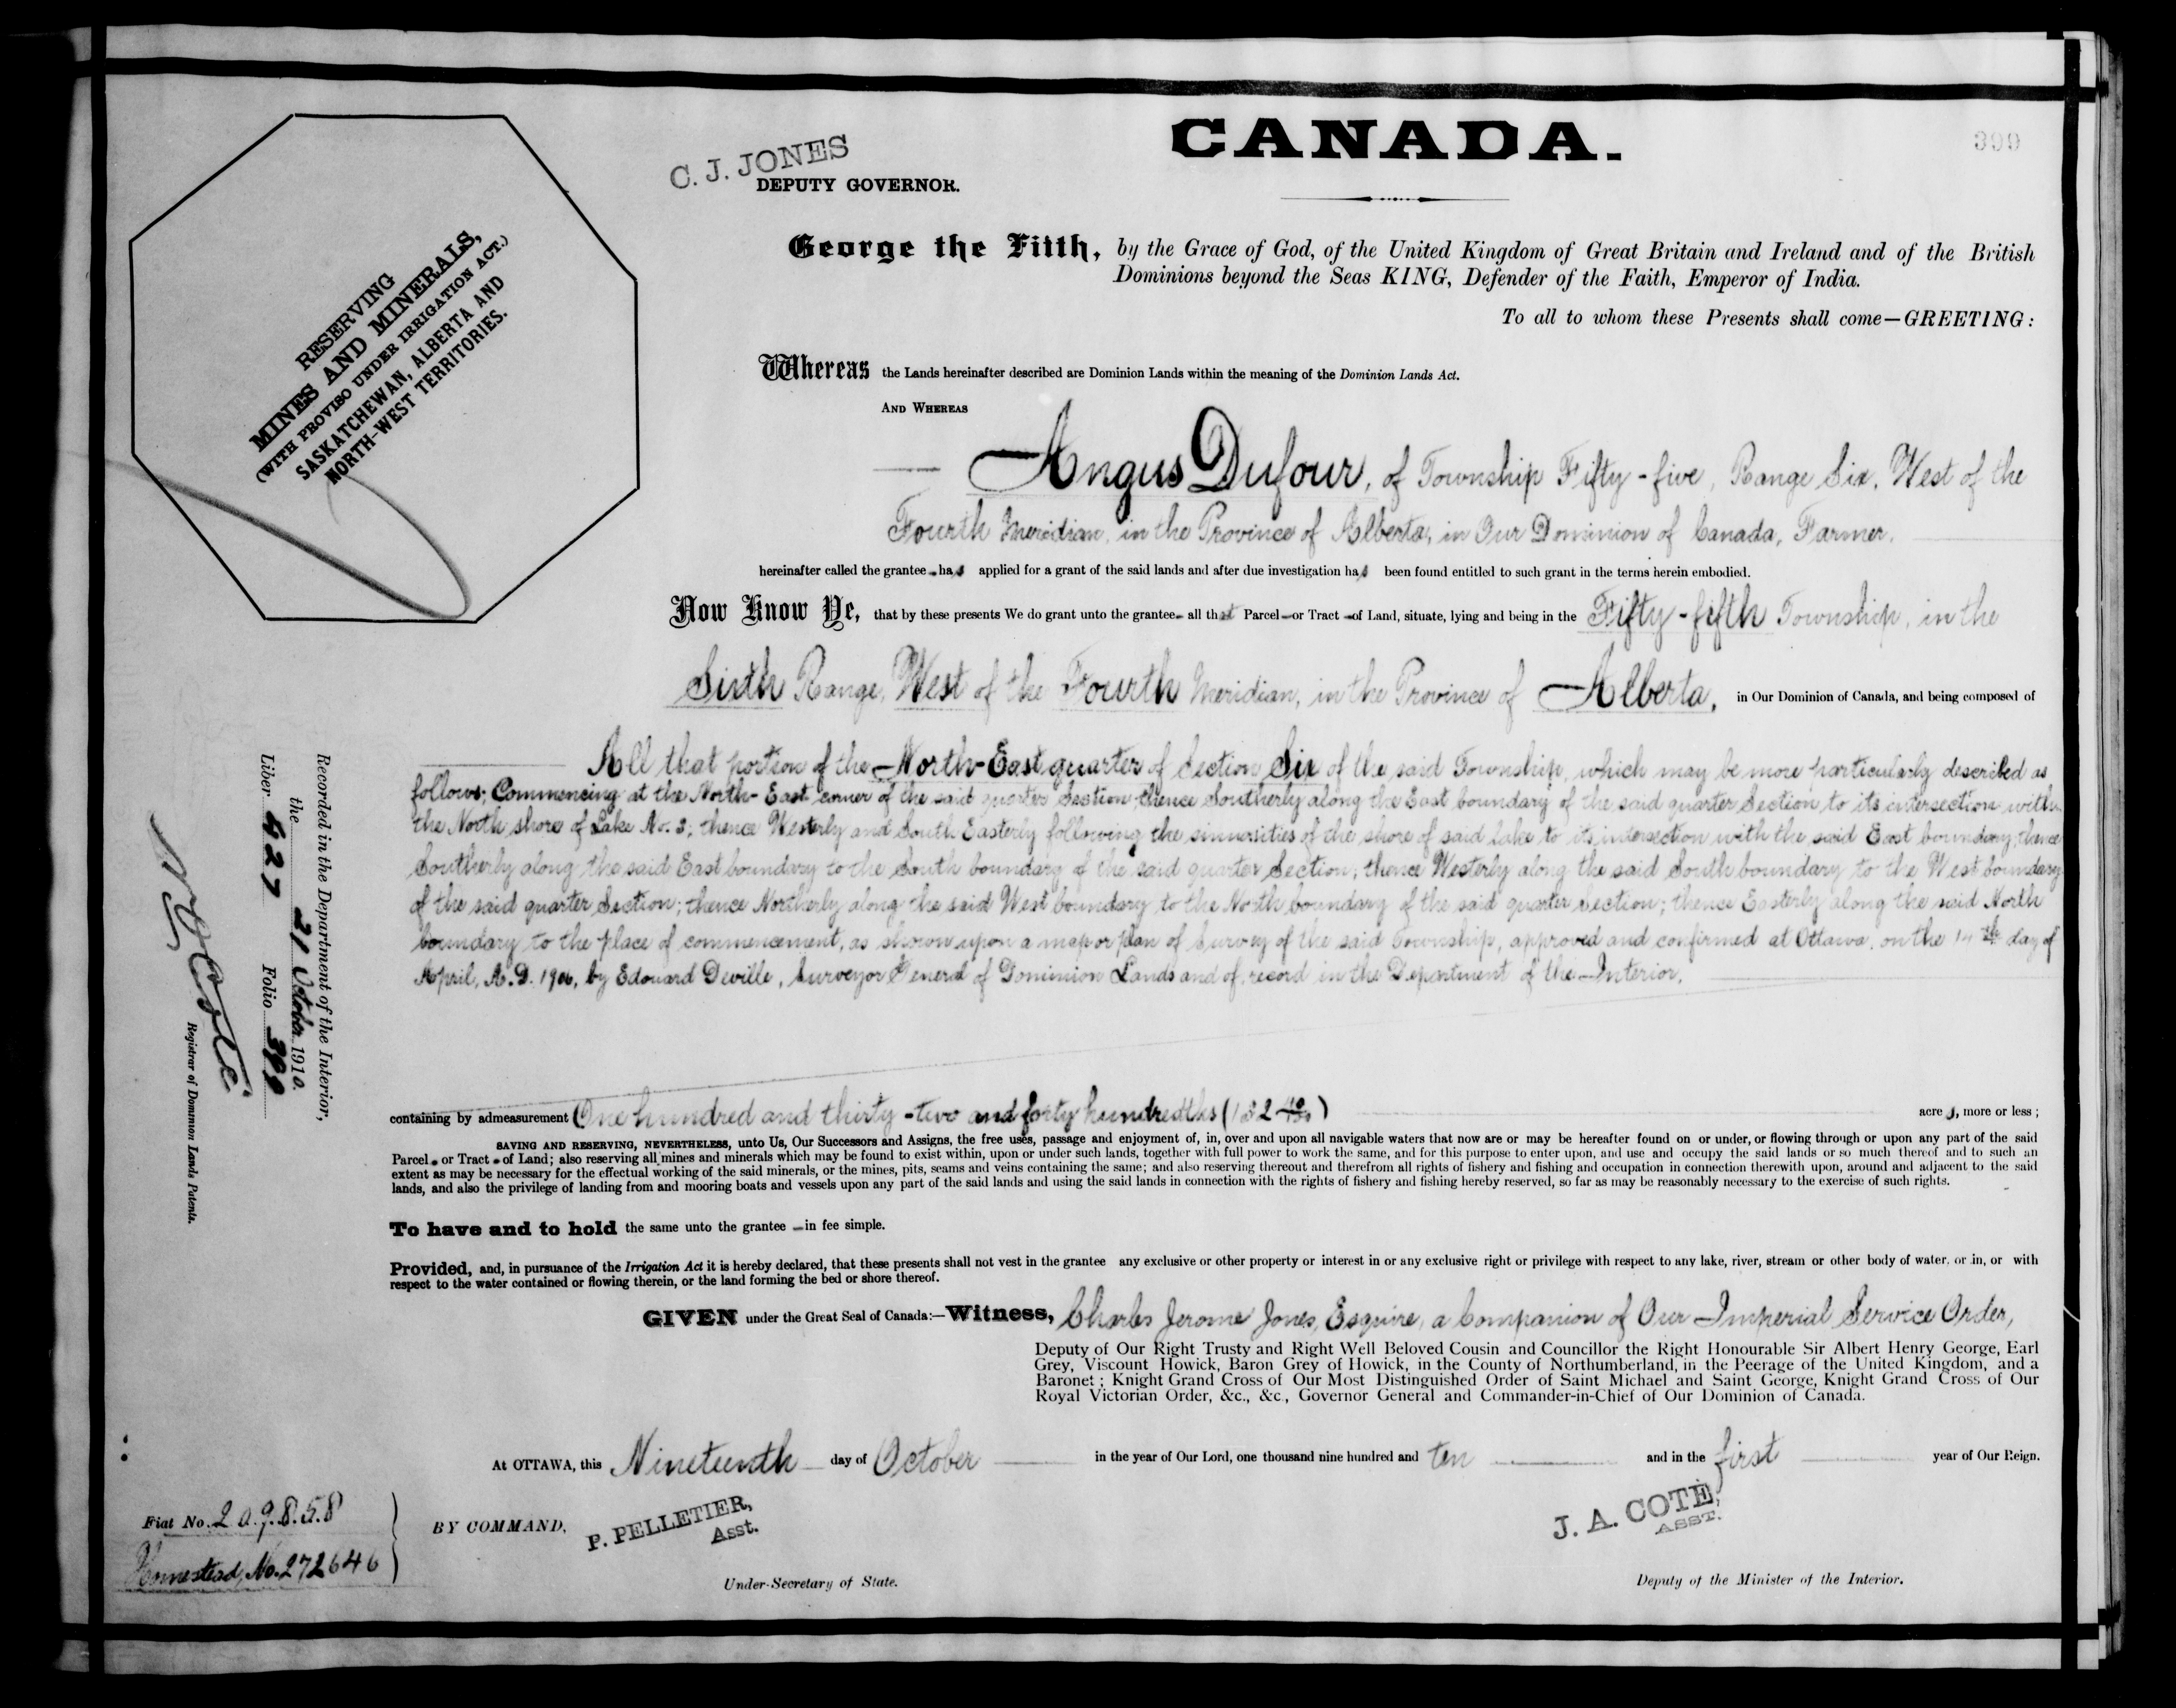 CANADA.
399
C. J. JONES
DEPUTY GOVERNOR.
RESERVING
MINES AND MINERALS,
(WITH PROVISO UNDER IRRIGATION ACT.)
SASKATCHEWAN, ALBERTA AND
NORTH-WEST TERRITORIES.
George the Fifth, by the Grace of God, of the United Kingdom of Great Britain and Ireland and of the British
Dominions beyond the Seas KING, Defender of the Faith, Emperor of India.
To all to whom these Presents shall come—GREETING:
Whereas the Lands hereinafter described are Dominion Lands within the meaning of the Dominion Lands Act.
AND WHEREAS
Angus Dufour, of Township Fifty-five, Range Six, West of the
Fourth Meridian, in the Province of Alberta, in Our Dominion of Canada, Farmer,
hereinafter called the grantee has applied for a grant of the said lands and after due investigation has been found entitled to such grant in the terms herein embodied.
Now Know Ye, that by these presents We do grant unto the grantee all that Parcel or Tract of Land, situate, lying and being in the Fifty-fifth Township, in the
Sixth Range, West of the Fourth Meridian, in the Province of Alberta, in Our Dominion of Canada, and being composed of
All that portion of the North-East quarter of Section Six of the said Township, which may be more particularly described as
follows; Commencing at the North-East corner of the said quarter Section thence Southerly along the East boundary of the said quarter Section to its intersection with
the North shore of Lake No. 3; thence Westerly and South Easterly following the sinuosities of the shore of said lake to its intersection with the said East boundary, thence
Southerly along the said East boundary to the South boundary of the said quarter Section; thence Westerly along the said South boundary to the West boundary
of the said quarter Section; thence Northerly along the said West boundary to the North boundary of the said quarter Section; thence Easterly along the said North
boundary to the place of commencement, as shown upon a map or plan of Survey of the said Township, approved and confirmed at Ottawa, on the 14th day of
April, A.D. 1906, by Edouard Deville, Surveyor General of Dominion Lands and of record in the Department of the Interior.
containing by admeasurement One hundred and thirty-two and forty hundredths (132 40/100) acres, more or less;
SAVING AND RESERVING, NEVERTHELESS, unto Us, Our Successors and Assigns, the free uses, passage and enjoyment of, in, over and upon all navigable waters that now are or may be hereafter found on or under, or flowing through or upon any part of the said
Parcel or Tract of Land; also reserving all mines and minerals which may be found to exist within, upon or under such lands, together with full power to work the same, and for this purpose to enter upon, and use and occupy the said lands or so much thereof and to such an
extent as may be necessary for the effectual working of the said minerals, or the mines, pits, seams and veins containing the same; and also reserving thereout and therefrom all rights of fishery and fishing and occupation in connection therewith upon, around and adjacent to the said
lands, and also the privilege of landing from and mooring boats and vessels upon any part of the said lands and using the said lands in connection with the rights of fishery and fishing hereby reserved, so far as may be reasonably necessary to the exercise of such rights.
To have and to hold the same unto the grantee in fee simple.
Provided, and, in pursuance of the Irrigation Act it is hereby declared, that these presents shall not vest in the grantee any exclusive or other property or interest in or any exclusive right or privilege with respect to any lake, river, stream or other body of water, or in, or with
respect to the water contained or flowing therein, or the land forming the bed or shore thereof.
GIVEN under the Great Seal of Canada:—Witness, Charles Jerome Jones, Esquire, a Companion of Our Imperial Service Order,
Deputy of Our Right Trusty and Right Well Beloved Cousin and Councillor the Right Honourable Sir Albert Henry George, Earl
Grey, Viscount Howick, Baron Grey of Howick, in the County of Northumberland, in the Peerage of the United Kingdom, and a
Baronet; Knight Grand Cross of Our Most Distinguished Order of Saint Michael and Saint George, Knight Grand Cross of Our
Royal Victorian Order, &c., &c., Governor General and Commander-in-Chief of Our Dominion of Canada.
At OTTAWA, this Nineteenth day of October in the year of Our Lord, one thousand nine hundred and ten and in the first year of Our Reign.
BY COMMAND,
P. PELLETIER,
Asst.
Under-Secretary of State.
J. A. COTE,
ASST.
Deputy of the Minister of the Interior.
Recorded in the Department of the Interior,
the 21 October 1910.
Liber 427 Folio 399
N O Coté
Registrar of Dominion Lands Patents.
Fiat No. 209858
Homestead, No. 272646